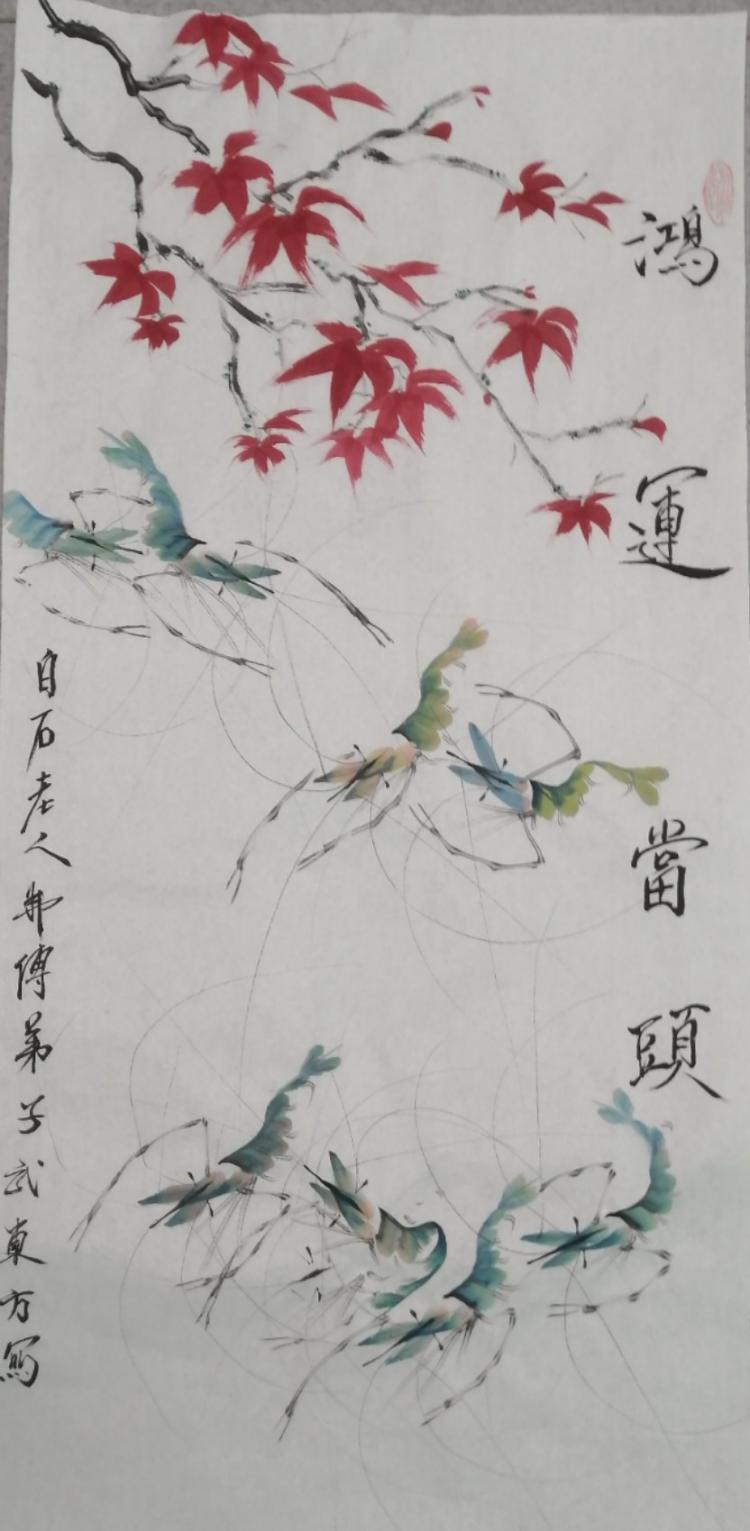 鴻運當頭
白石老人傳弟子武東方寫